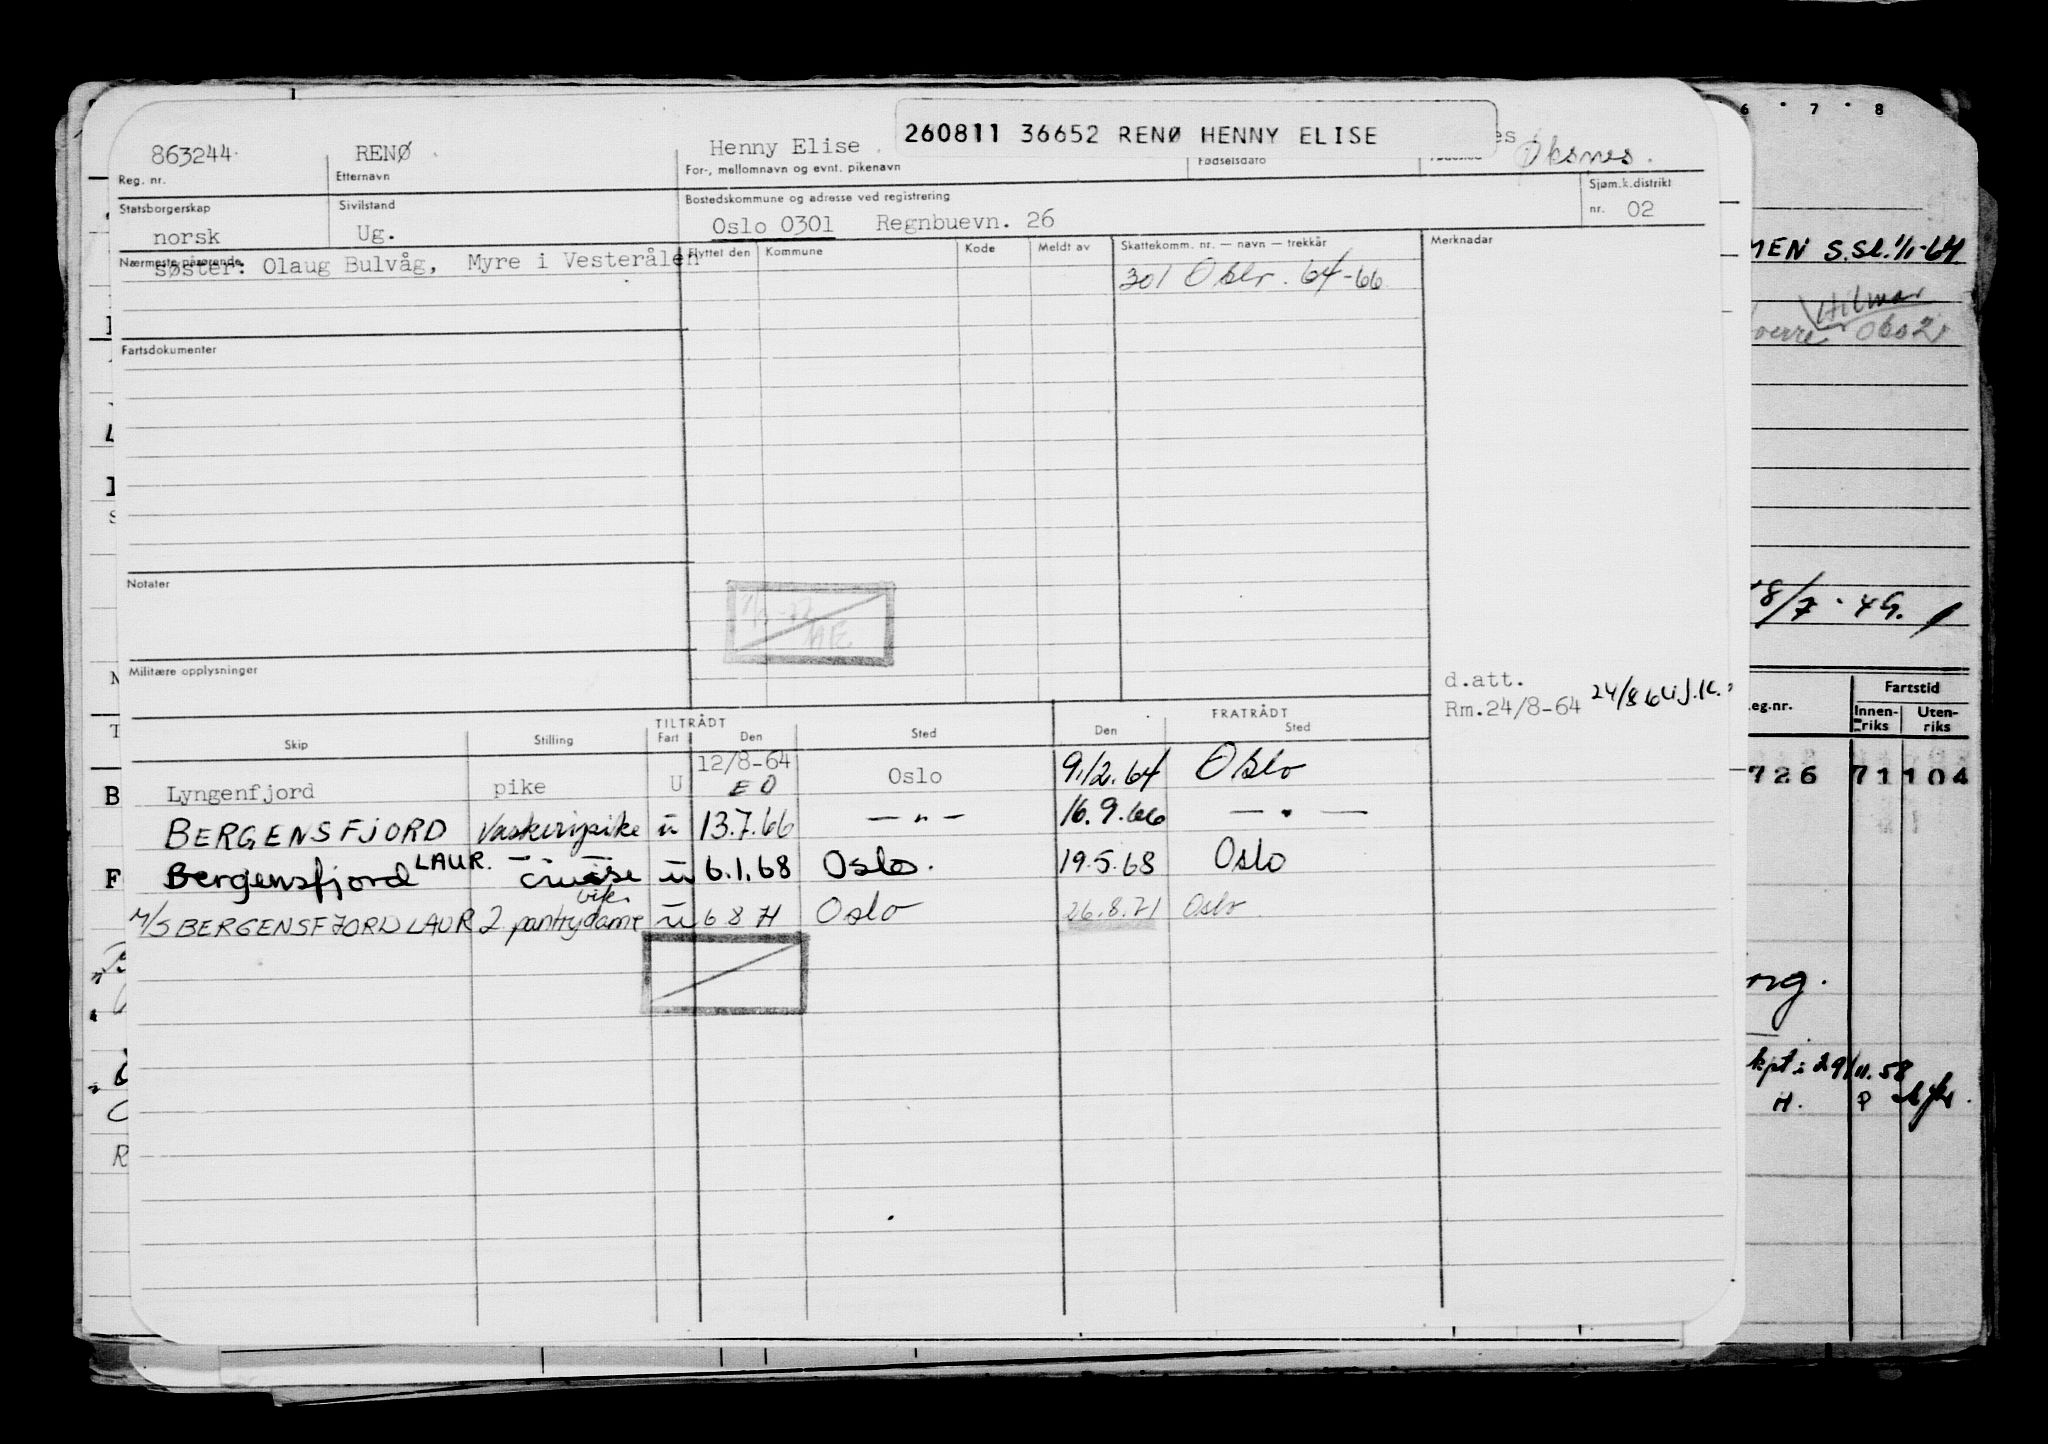 260811 36652 RENØ HENNY ELISE
863244 RENØ Henny Elise Øksnes.
Reg. nr. Etternavn For-, mellomnavn og evnt. pikenavn Fødselsdato
Statsborgerskap Sivilstand Bostedskommune og adresse ved registrering Sjøm.k.distrikt
norsk Ug. Oslo 0301 Regnbuevn. 26 nr. 02
Nærmeste pårørende Flyttet den Kommune Kode Meldt av Skattekomm. nr. — navn — trekkår Merknader
søster: Olaug Bulvåg, Myre i Vesterålen
301 Oslo. 64-66
Fartsdokumenter
Notater
Militære opplysninger
d.att.
Rm.24/8-64
TILTRÅDT FRATRÅDT
Skip Stilling Fart Den Sted Den Sted
Lyngenfjord pike U 12/8-64 Oslo 9.12.64 Oslo
EO
BERGENSFJORD Vaskeripike u 13.7.66 — " — 16.9.66 — " —
Bergensfjord LAUR. cruise u 6.1.68 Oslo. 19.5.68 Oslo
vik.
M/S BERGENSFJORD LAUR 2 pantrydame u 6 8 71 Oslo 26.8.71 Oslo
6 7 8
MEN S.Sl. 1/1-64
Hilmar
0602
18/7 - 49.
eg.nr. Fartstid
Innen-riks Uten-riks
726 71 104
org.
kpt i 29/11.58
H. P